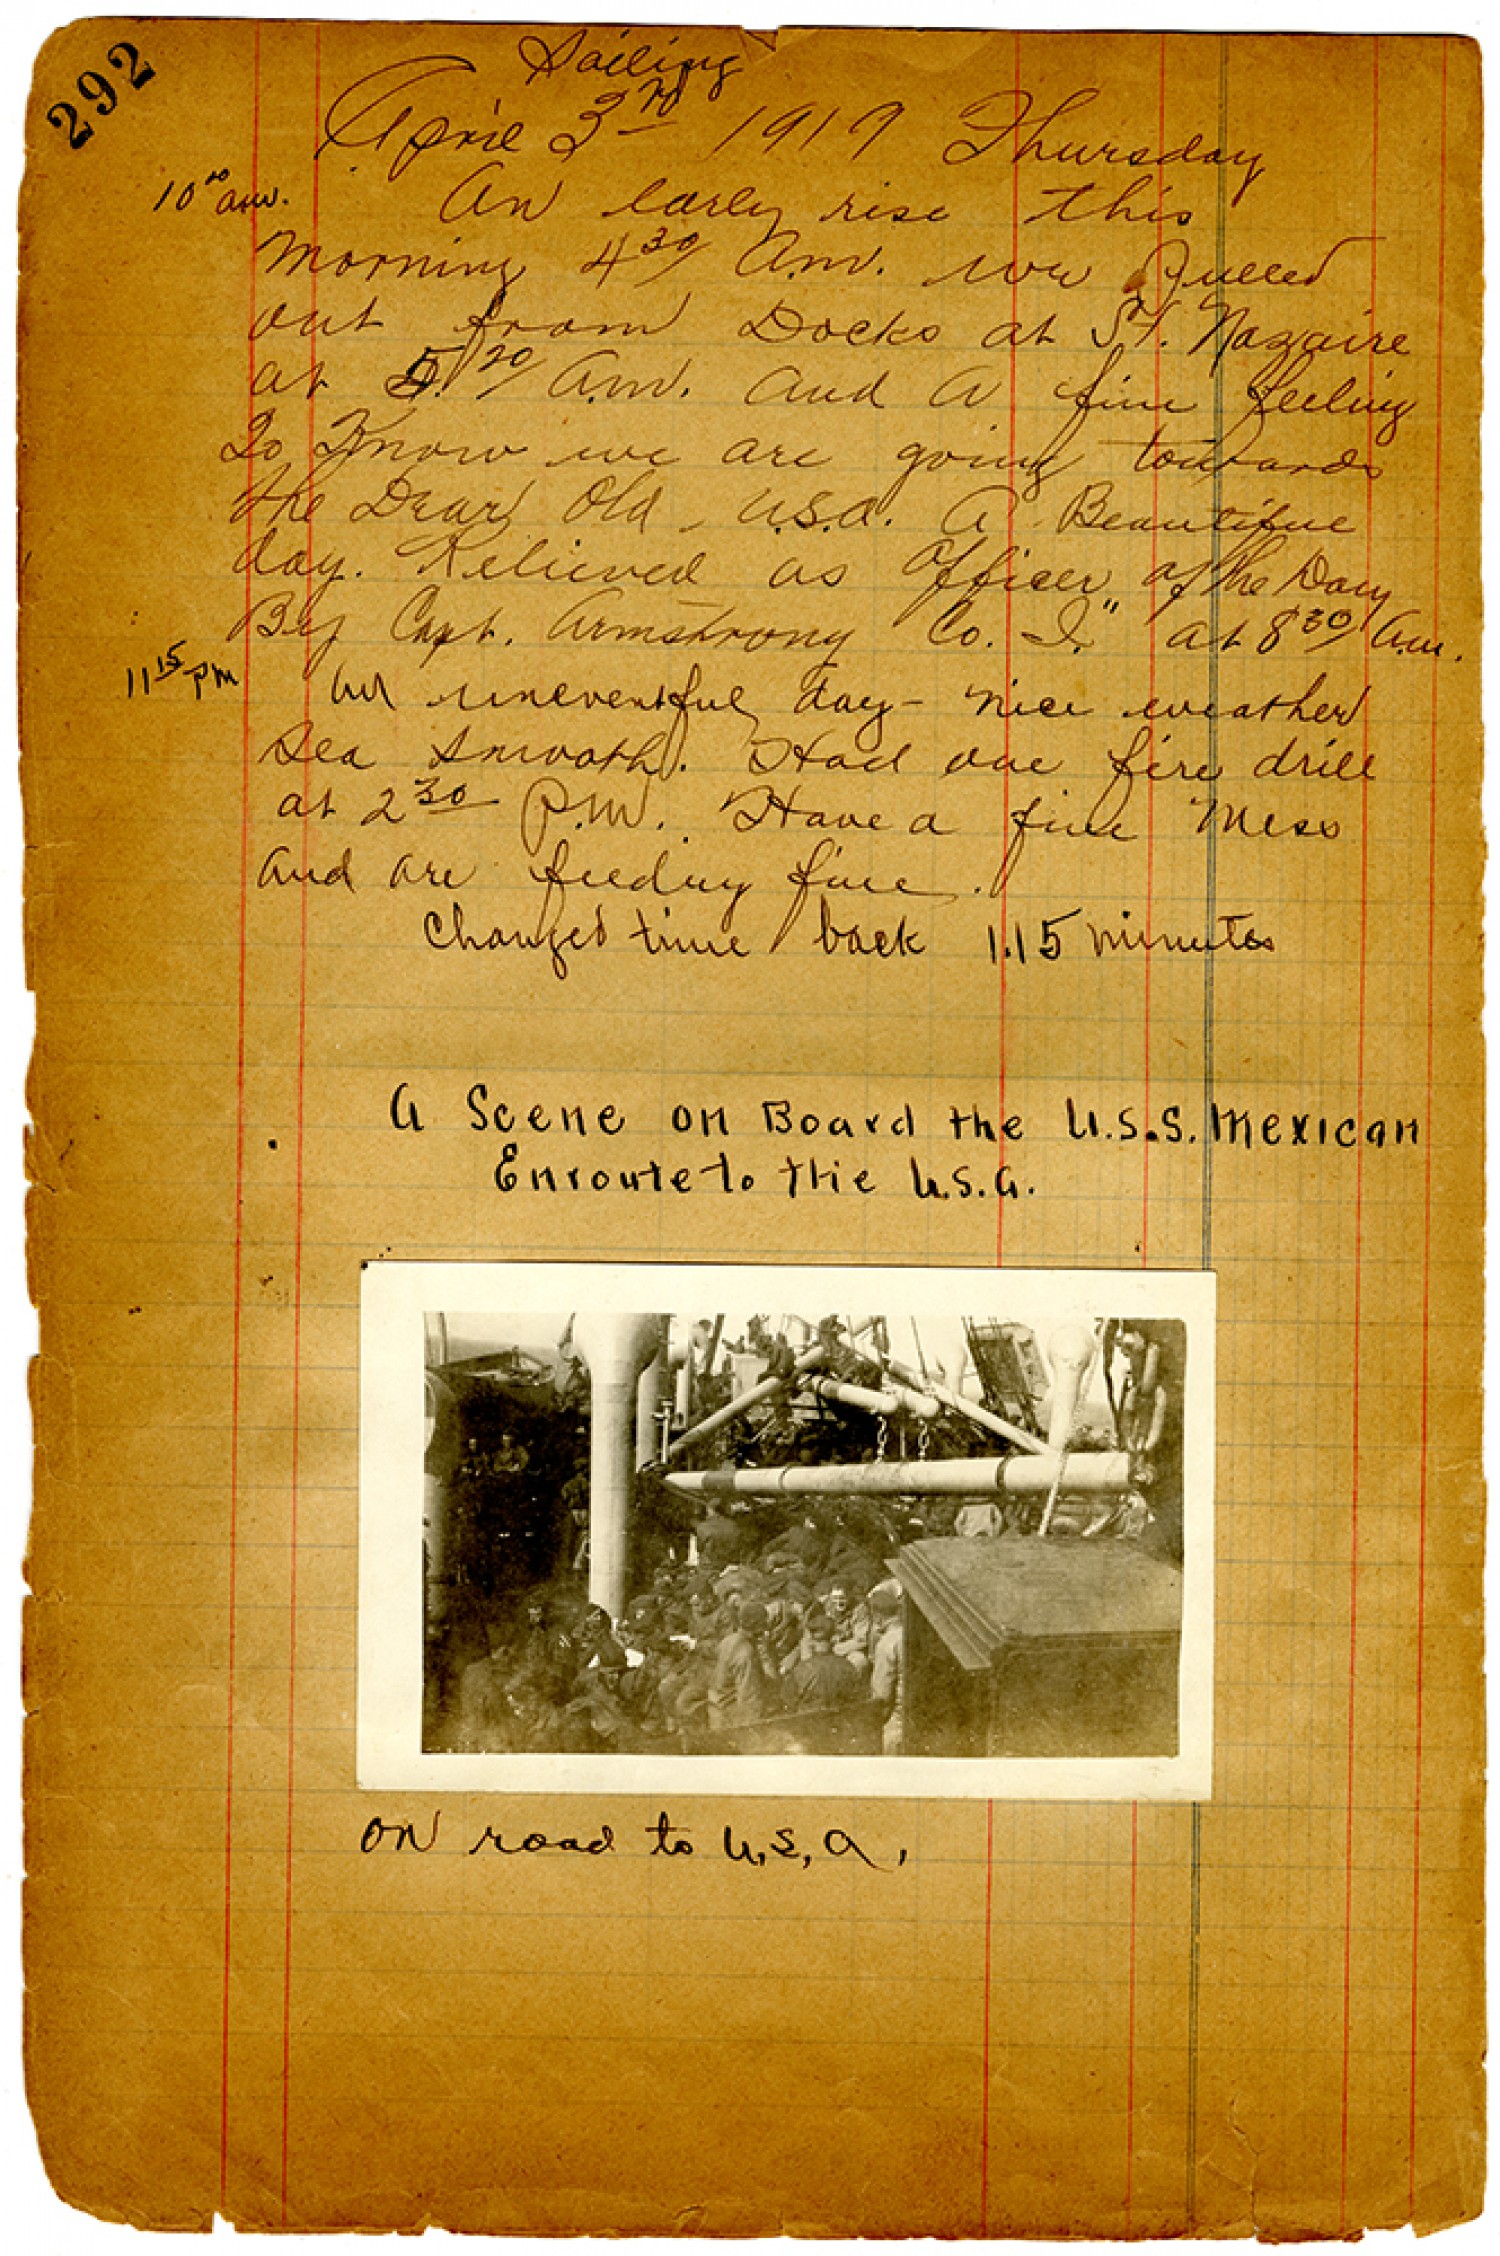 292
Sailing
April 3rd 1919 Thursday
10 00 a.m. An early rise this
morning 4 30/ A.m. we Pulled
out from Docks at St. Nazaire
at 5. 20/ A.m. and a fine feeling
To Know we are going towards
the Dear Old U.S.A. A Beautiful
day. Relieved as Officer of the Day
By Capt. Armstrong Co. I." at 8 30/ A.m.
11 15 PM An uneventful day - nice weather
Sea Smooth. Had one fire drill
at 2 30 P.M. Have a fine Mess
and are feeding fine.
Changed time back 1.15 minutes
A Scene on Board the U.S.S. Mexican
Enroute to the U.S.A.
on road to U.S.A.